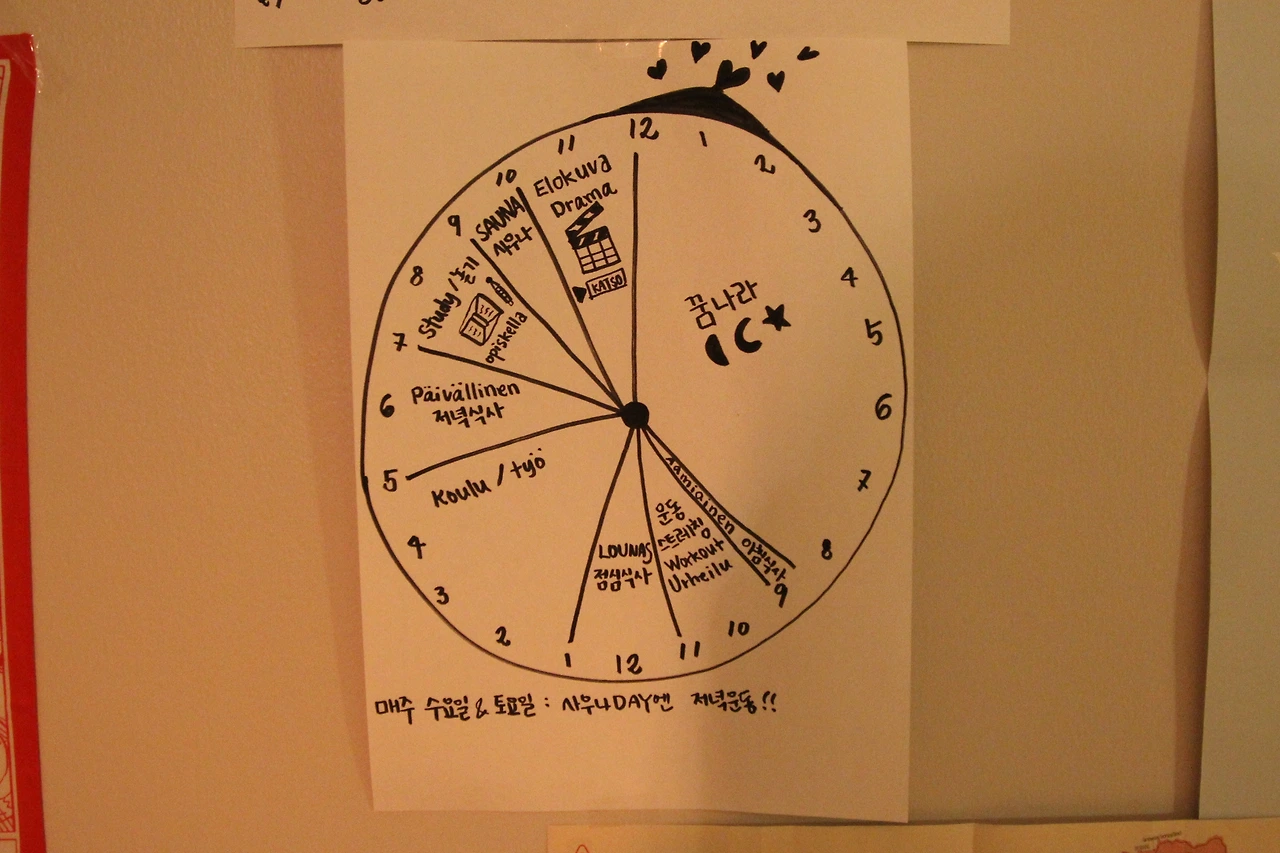 12
1
2
3
4
5
6
7
8
9
10
11
12
1
2
3
4
5
6
7
8
9
10
11
Elokuva
Drama
KATSO
SAUNA
사우나
Study/놀기
opiskella
Päivällinen
저녁식사
Koulu / työ
LOUNAS
점심식사
운동
스트레칭
Workout
Urheilu
Aamiainen 아침식사
꿈나라
매주 수요일 & 토요일 : 사우나DAY엔 저녁운동!!